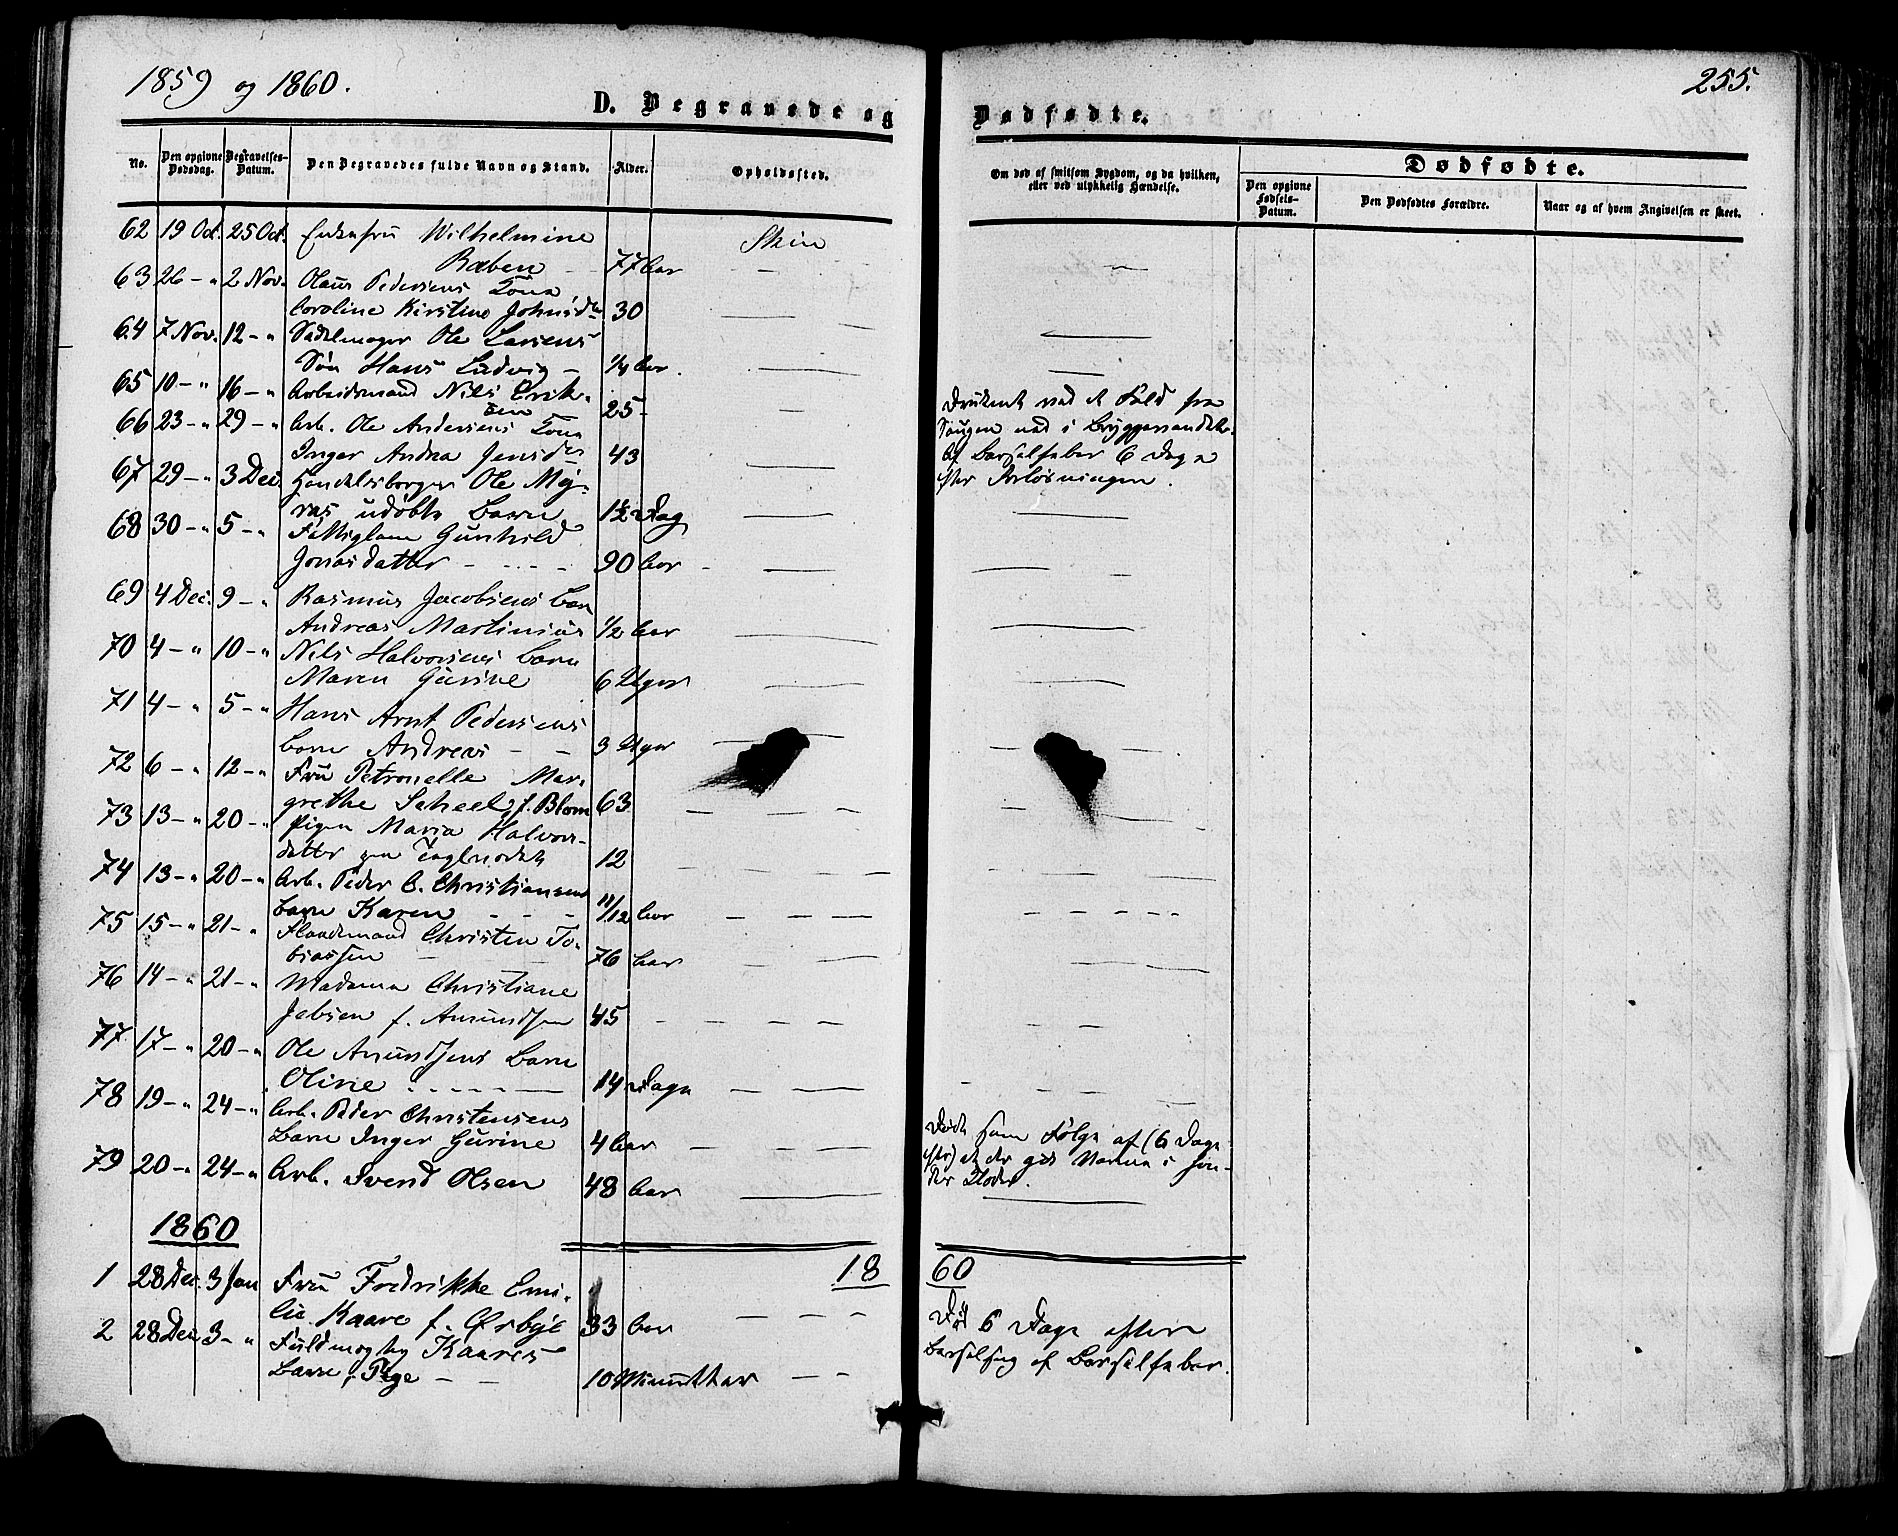 1859 og 1860.
255.
D. Begravede og
Dødfødte.
No.
Den opgivne Dødsdag.
Begravelses-Datum.
Den Begravedes fulde Navn og Stand.
Alder.
Opholdssted.
Om død af smitsom Sygdom, og da hvilken, eller ved ulykkelig Hændelse.
Dødfødte.
Den opgivne Fødsels-Datum.
Den Dødfødtes Forældre.
Naar og af hvem Angivelsen er skeet.
62 19 Oct. 25 Oct. Enkefru Wilhelmine Skien
Raben - 77 Aar
63 26 - " 2 Nov. Olaus Pedersens Kone
Caroline Kirstine Johnsdtr 30
64 7 Nov. 12 - " Sadelmager Ole Larsens
Søn Hans Ludvig - 1/4 Aar.
65 10 - " 16 - " Arbeidsmand Nils Erik-
sen 25 - Druknet ved et Fald fra
66 23 - " 29 - " Arb. Ole Andersens Kone
Saugen ned i Bryggerivandet.
Inger Andrea Jensdtr 43 Af Barselfeber 6 Dage
67 29 - " 3 Dec. Handelsborger Ole My-
efter Forløsningen.
ras udøbte Barn 1½ Dag
68 30 - " 5 - " Fattiglem Gunhild
Jonasdatter - - - - 90 Aar
69 4 Dec. 9 - " Rasmus Jacobsens Barn
Andreas Martinius 1/2 Aar
70 4 - " 10 - " Nils Halvorsens Barn
Maren Gurine 6 Uger
71 4 - " 5 - " Hans Arnt Pedersens
Barn Andreas - - 3 Uger
72 6 - " 12 - " Fru Petronelle Mar-
grethe Scheel f. Blom 63
73 13 - " 20 - " Pigen Maria Halvors-
datter 12
74 13 - " 20 - " Arb. Peder C. Christiansens
Barn Karen - - - 11/12 Aar
75 15 - " 21 - " Christen To-
biassen 76 Aar
76 14 - " 21 - " Madame Christiane
Jebsen f. Amundsen 45
77 17 - " 20 - " Ole Amundsens Barn
Oline - - - - 14 Dage
78 19 - " 24 - " Arb. Peder Christensens
Barn Inger Gurine 4 Aar Død som Følge af (6 Dage
79 20 - " 24 - " Arb. Svend Olsen 48 Aar
efter) at der gik
1860
18 60
1 28 Dec. 3 Jan Fru Fredrikke Emi-
lie Kaare f. Ørbye 33 Aar Død 6 Dage efter
2 28 Dec. 3 - " Fuldmægtig Kaares
Barselseng af Barselfeber.
Barn, Pige - - 10 Minutter